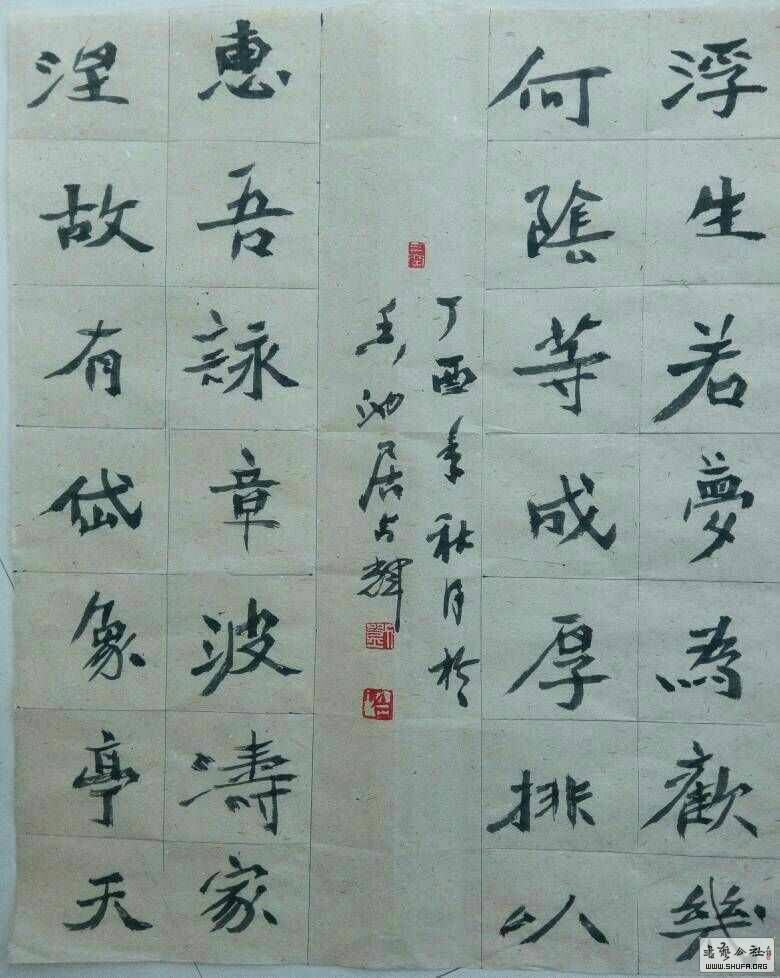 浮生若夢為歡幾
何陰等成厚排以
丁酉年秋月於
墨池居占輝
惠吾詠章波濤家
涅故有岱象亭天
书艺公社
WWW.SHUFA.ORG